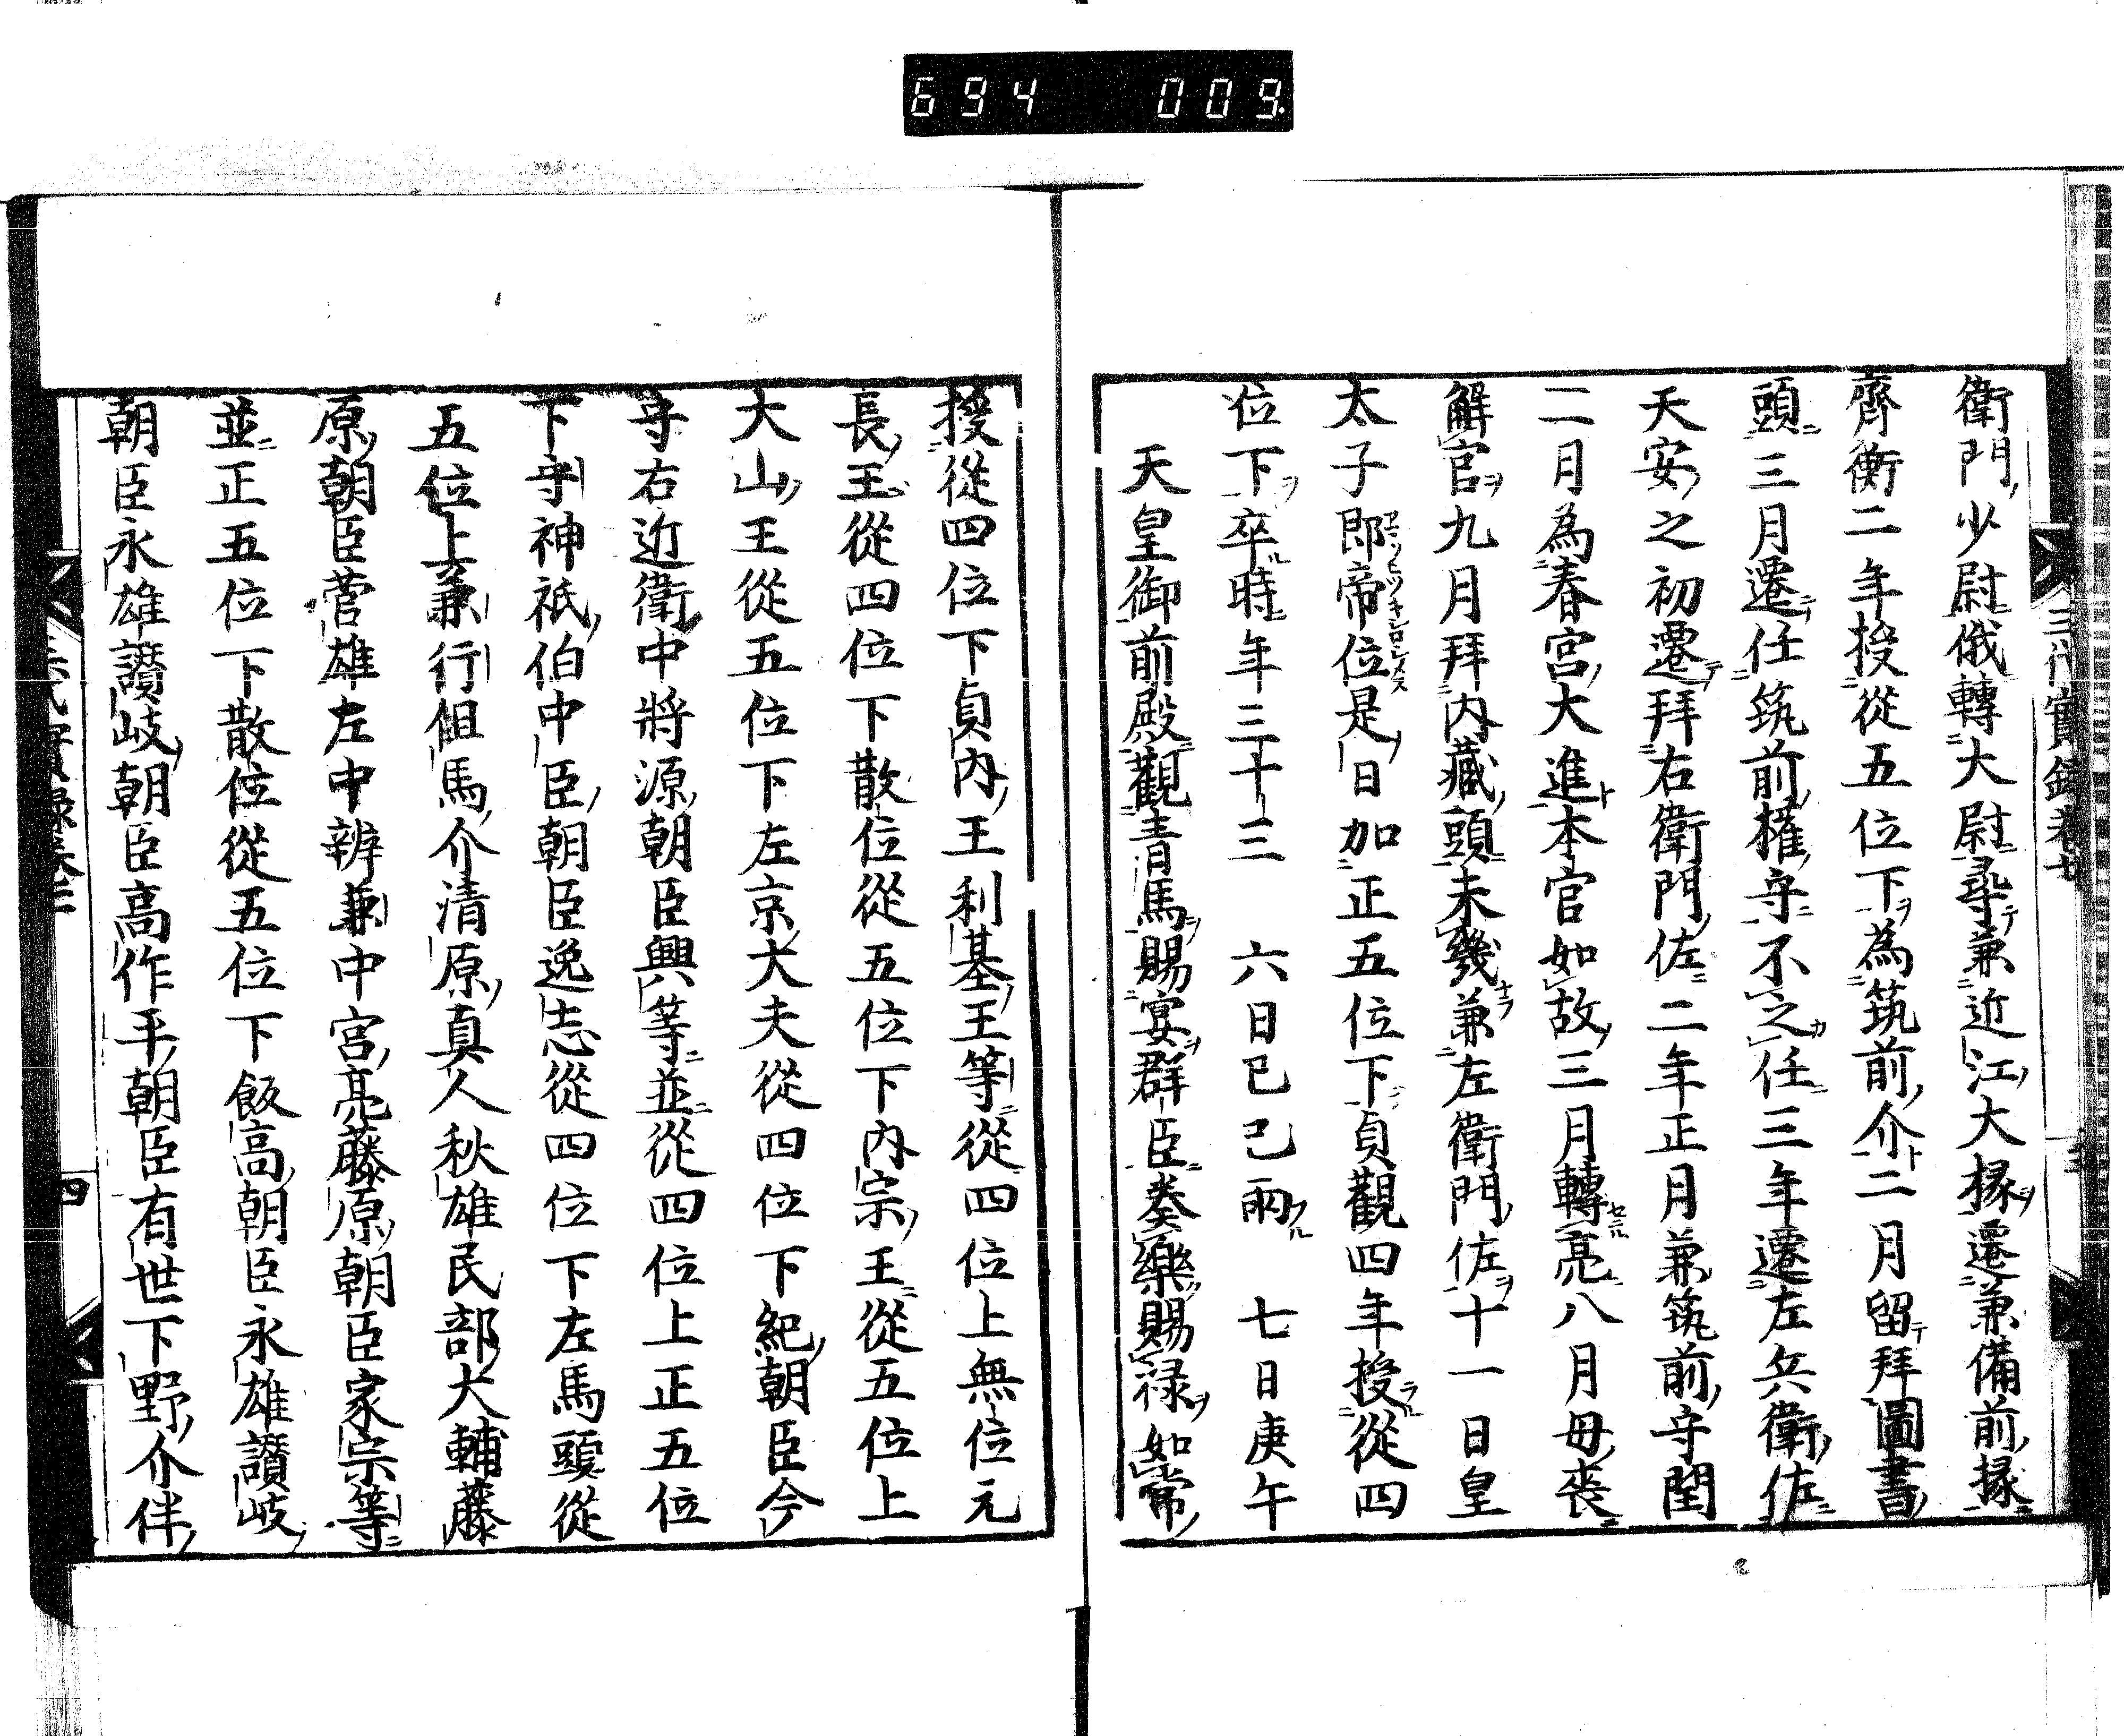 694 009
三代實錄卷七
衛門少尉俄轉大尉尋兼近江大掾遷兼備前掾
齊衡二年授從五位下為筑前介二月留拜圖書
頭三月遷任筑前權守不之任三年遷左兵衛佐
天安之初遷拜右衛門佐二年正月兼筑前守閏
二月為春宮大進本官如故三月轉亮八月母喪
解官九月拜内藏頭未幾兼左衛門佐十一日皇
太子即帝位是日加正五位下貞觀四年授從四
位下卒時年三十三　六日己巳雨　七日庚午
天皇御前殿觀青馬賜宴群臣奏樂賜禄如常
授從四位下貞内王利基王等從四位上無位元
長王從四位下散位從五位下内宗王從五位上
大山王從五位下左京大夫從四位下紀朝臣今
守右近衛中將源朝臣興等並從四位上正五位
下守神祇伯中臣朝臣逸志從四位下左馬頭從
五位上兼行伹馬介清原真人秋雄民部大輔藤
原朝臣菅雄左中辨兼中宮亮藤原朝臣家宗等
並正五位下散位從五位下飯高朝臣永雄讃岐
朝臣永雄讃岐朝臣高作平朝臣有世下野介伴
四